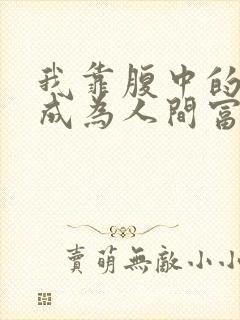 我靠腹中的
成為人間富
賣萌無敵小小